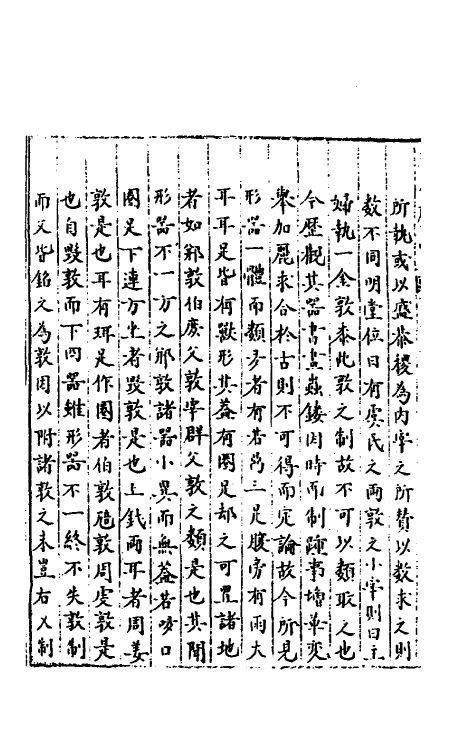 所執或以盛黍稷為内宰之所贊以數求之則
數不同明堂位曰有虞氏之兩敦之小宰則曰主
婦執一金敦黍此敦之制故不可以類取之也
今歴觀其器書畫蟲鏤因時而制踵事增華變
舉加麗求合於古則不可得而定論故今所見
形器一體而類多者有若鬲三足腹旁有兩大
耳耳足皆有獸形其蓋有圈足却之可置諸地
者如䢵敦伯庶父敦宰辟父敦之類是也其間
形器不一方之䢵敦諸器小異而無蓋若哆口
圈足下連方坐者毁敦是也上鈛兩耳者周姜
敦是也耳有珥足作圈者伯敦虺敦周虔敦是
也自毁敦而下四器雖形器不一終不失敦制
而又皆銘之為敦因以附諸敦之末豈右乂制